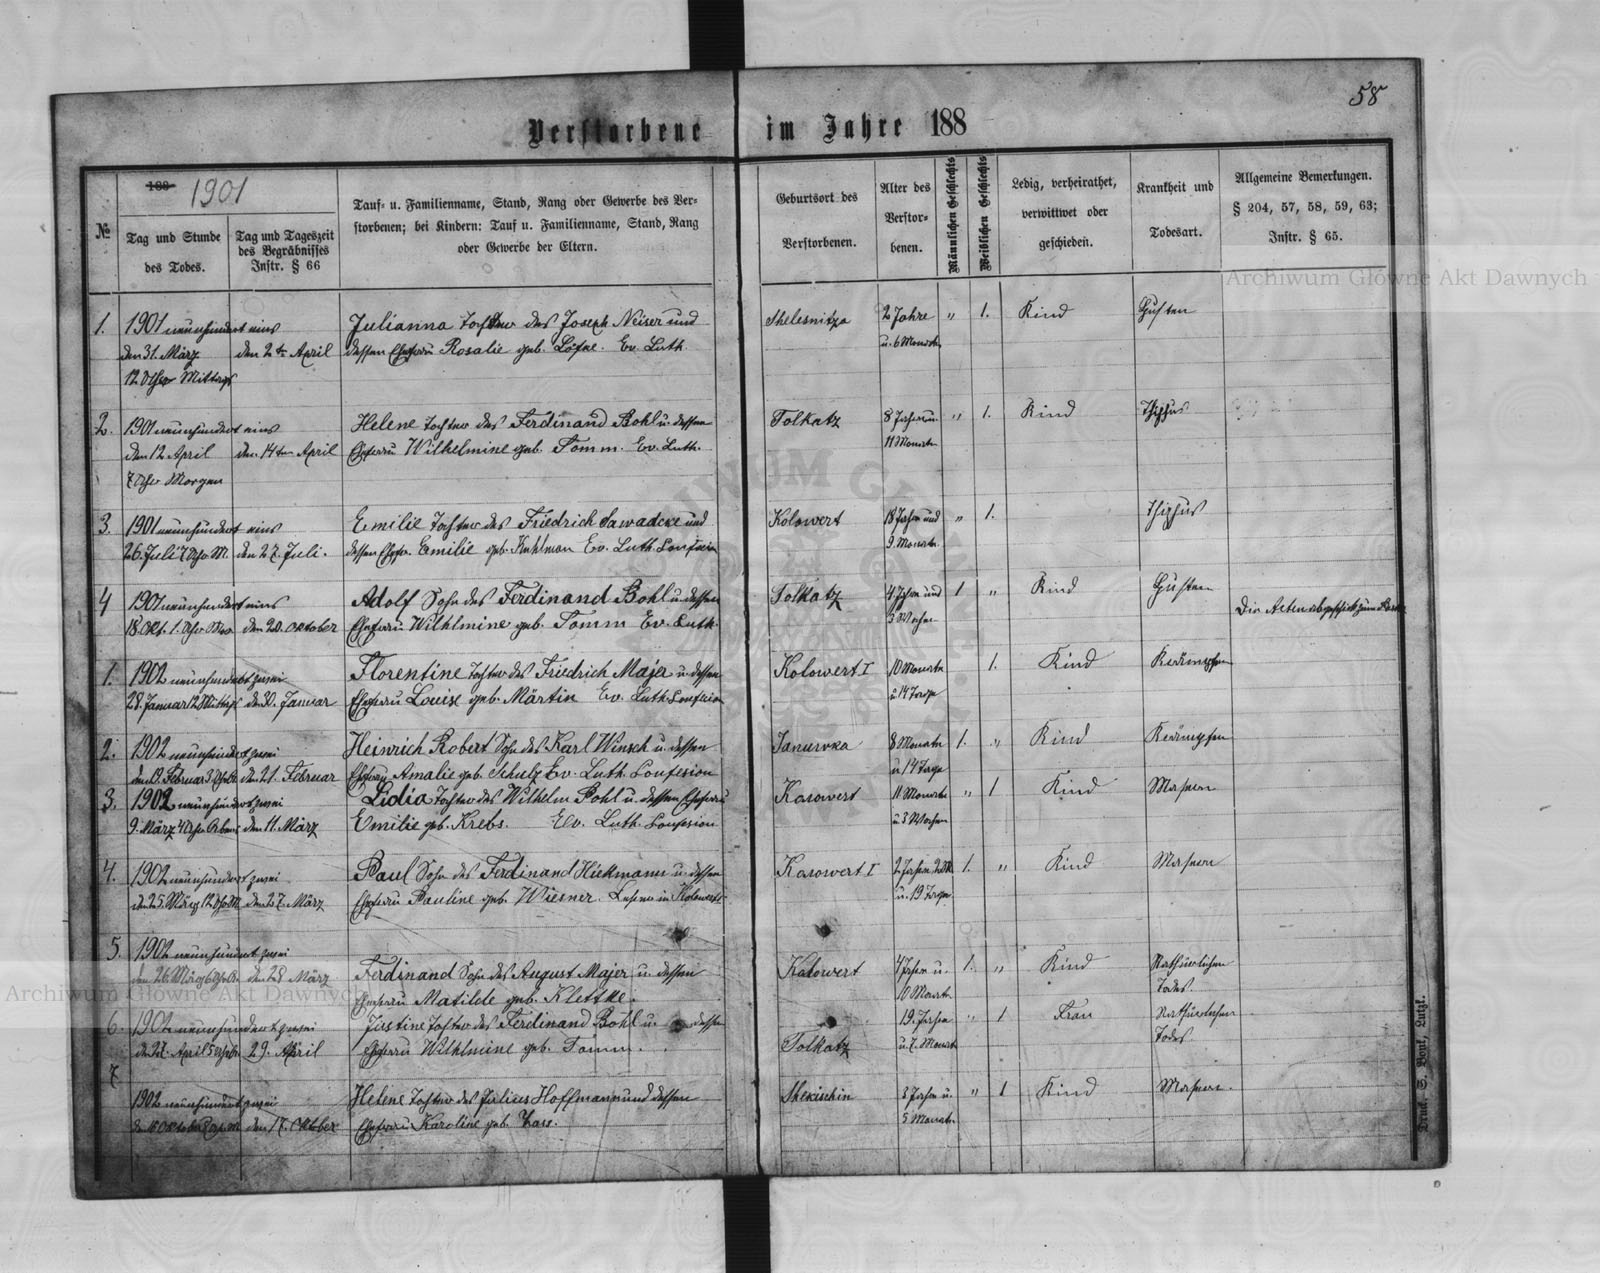 58
Verstorbene im Jahre 188
№
188 1901
Tag und Stunde des Todes.
Tag und Tageszeit des Begräbnisses Instr. § 66
Tauf- u. Familienname, Stand, Rang oder Gewerbe des Ver-
storbenen; bei Kindern: Tauf u. Familienname, Stand, Rang
oder Gewerbe der Eltern.
Geburtsort des Verstorbenen.
Alter des Verstor-benen.
Männlichen Geschlechts
Weiblichen Geschlechts
Ledig, verheirathet,
verwittwet oder
geschieden.
Krankheit und
Todesart.
Allgemeine Bemerkungen.
§ 204, 57, 58, 59, 63;
Instr. § 65.
Archiwum Główne Akt Dawnych
1. 1901 neunhundert eins Julianna Tochter des Joseph Neiser und Shelesnitza 2 Jahre „ 1. Kind Husten
den 31. März den 2ten April dessen Ehefrau Rosalie geb. Ev. Luth. u. 6 Monate
12 Uhr Mittags
2. 1901 neunhundert eins Helene Tochter des Ferdinand Bohl u. dessen Tolkatz 8 Jahre u. „ 1. Kind
den 12 April den 14ten April Ehefrau Wilhelmine geb. Tomm. Ev. Luth. 11 Monate
7 Uhr Morgen
3. 1901 neunhundert eins Emilie Tochter des Friedrich Sawadcke und Kolowert 18 Jahre und „ 1.
26. Juli 7 Uhr M. den 27. Juli. dessen Ehefr. Emilie geb. Kuhlman Ev. Luth. Confesion 9. Monate
4 1901 neunhundert eins Adolf Sohn des Ferdinand Bohl u. dessen Tolkatz 4 Jahre und 1 „ Kind Husten
18. Okt. 1. Uhr den 20. Oktober Ehefrau Wilhlmine geb. Tomm Ev. Luth. 3 Wochen Die Akten abgeschickt zum
1. 1902 neunhundert zwei Florentine Tochter des Friedrich Majer u. dessen Kolowert I 10 Monate 1. Kind
28. Januar 12 Mittags den 30. Januar Ehefrau Louise geb. Märtin Ev. Luth. Confesion u 14 Tage
2. 1902 neunhundert zwei Heinrich Robert Sohn des Karl Winsch u. dessen Janurvka 8 Monate 1. „ Kind
den 19. Februar 3 Uhr den 21. Februar Ehefrau Amalie geb. Schulz Ev. Luth. Confesion u 14 Tage
3. 1902 neunhundert zwei Lidia Tochter des Wilhelm Bohl u. dessen Ehefrau Karowert 11 Monate „ 1 Kind Masern
9. März 4 Uhr den 11. März Emilie geb. Krebs. Ev. Luth. Confesion u 3 Wochen
4. 1902 neunhundert zwei Paul Sohn des Ferdinand Hiekmann u. dessen Karowert I 2 Jahre 1. „ Kind Masern
den 25. März 12 Uhr den 27. März Ehefrau Pauline geb. Wiesner. in u. 19 Tage
5. 1902 neunhundert zwei
den 26. März 6 Uhr den 28 März Ferdinand Sohn des August Majer u. dessen Kalowert 4 Jahre u. 1. „ Kind Nathürlichen
Ehefrau Matilde geb. Klettke. 10 Monate Todes.
Archiwum Główne Akt Dawnych
6. 1902 neunhundert zwei Justine Tochter des Ferdinand Bohl u. dessen 19. Jahre „ 1 Frau Nathürlichen
den 27. April 5 Uhr 29. April Ehefrau Wilhlmine geb. Tomm. Tolkatz u. 7. Monate Todes
7
1902 neunhundert zwei Helene Tochter des Julius Hoffmann und dessen Shekischin 3 Jahre u. „ 1 Kind Masern.
den 17. Oktober Ehefrau Karoline geb. 5 Monate
Druk. S. Bonk, Lutzk.